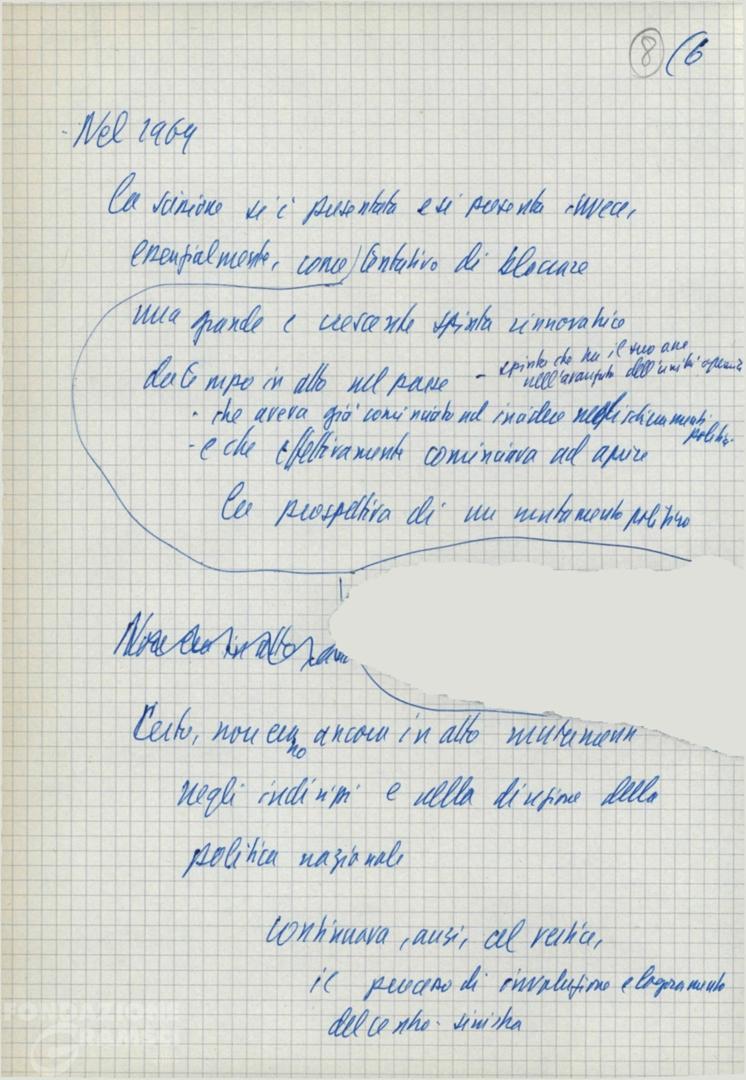 8 (6
- Nel 1969
la scissione si è presentata e si presenta invece,
essenzialmente, come tentativo di bloccare
una grande e crescente spinta rinnovatrice
da tempo in atto nel paese - spinta che ha il suo asse
nell'avanzata dell'unità operaia
- che aveva già cominciato ad incidere negli schieramenti
politici
- e che effettivamente cominciava ad aprire
la prospettiva di un mutamento politico
Certo, non erano ancora in atto mutamenti
negli indirizzi e nella direzione della
politica nazionale
continuava, anzi, al vertice,
il processo di involuzione e logoramento
del centro-sinistra
FONDAZIONE
GRAMSCI